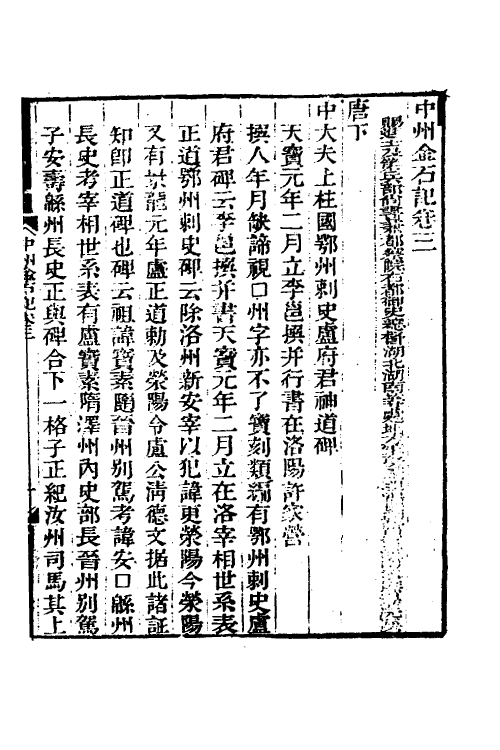 中州金石記卷三
唐下
中大夫上柱國鄂州刺史盧府君神道碑
天寶元年二月立李邕撰幷行書在洛陽許家營
撰人年月缺諦視口州字亦不了寶刻類編有鄂州刺史盧
府君碑云李邕撰幷書天寶元年二月立在洛宰相世系表
正道鄂州刺史碑云除洛州新安宰以犯諱更滎陽今滎陽
又有景龍元年盧正道勅及滎陽令盧公清德文据此諸証
知卽正道碑也碑云祖諱寶素隋晉州别駕考諱安口緜州
長史考宰相世系表有盧寶素隋澤州內史部長晉州别駕
子安壽緜州長史正與碑合下一格子正紀汝州司馬其上
中州金石記卷三